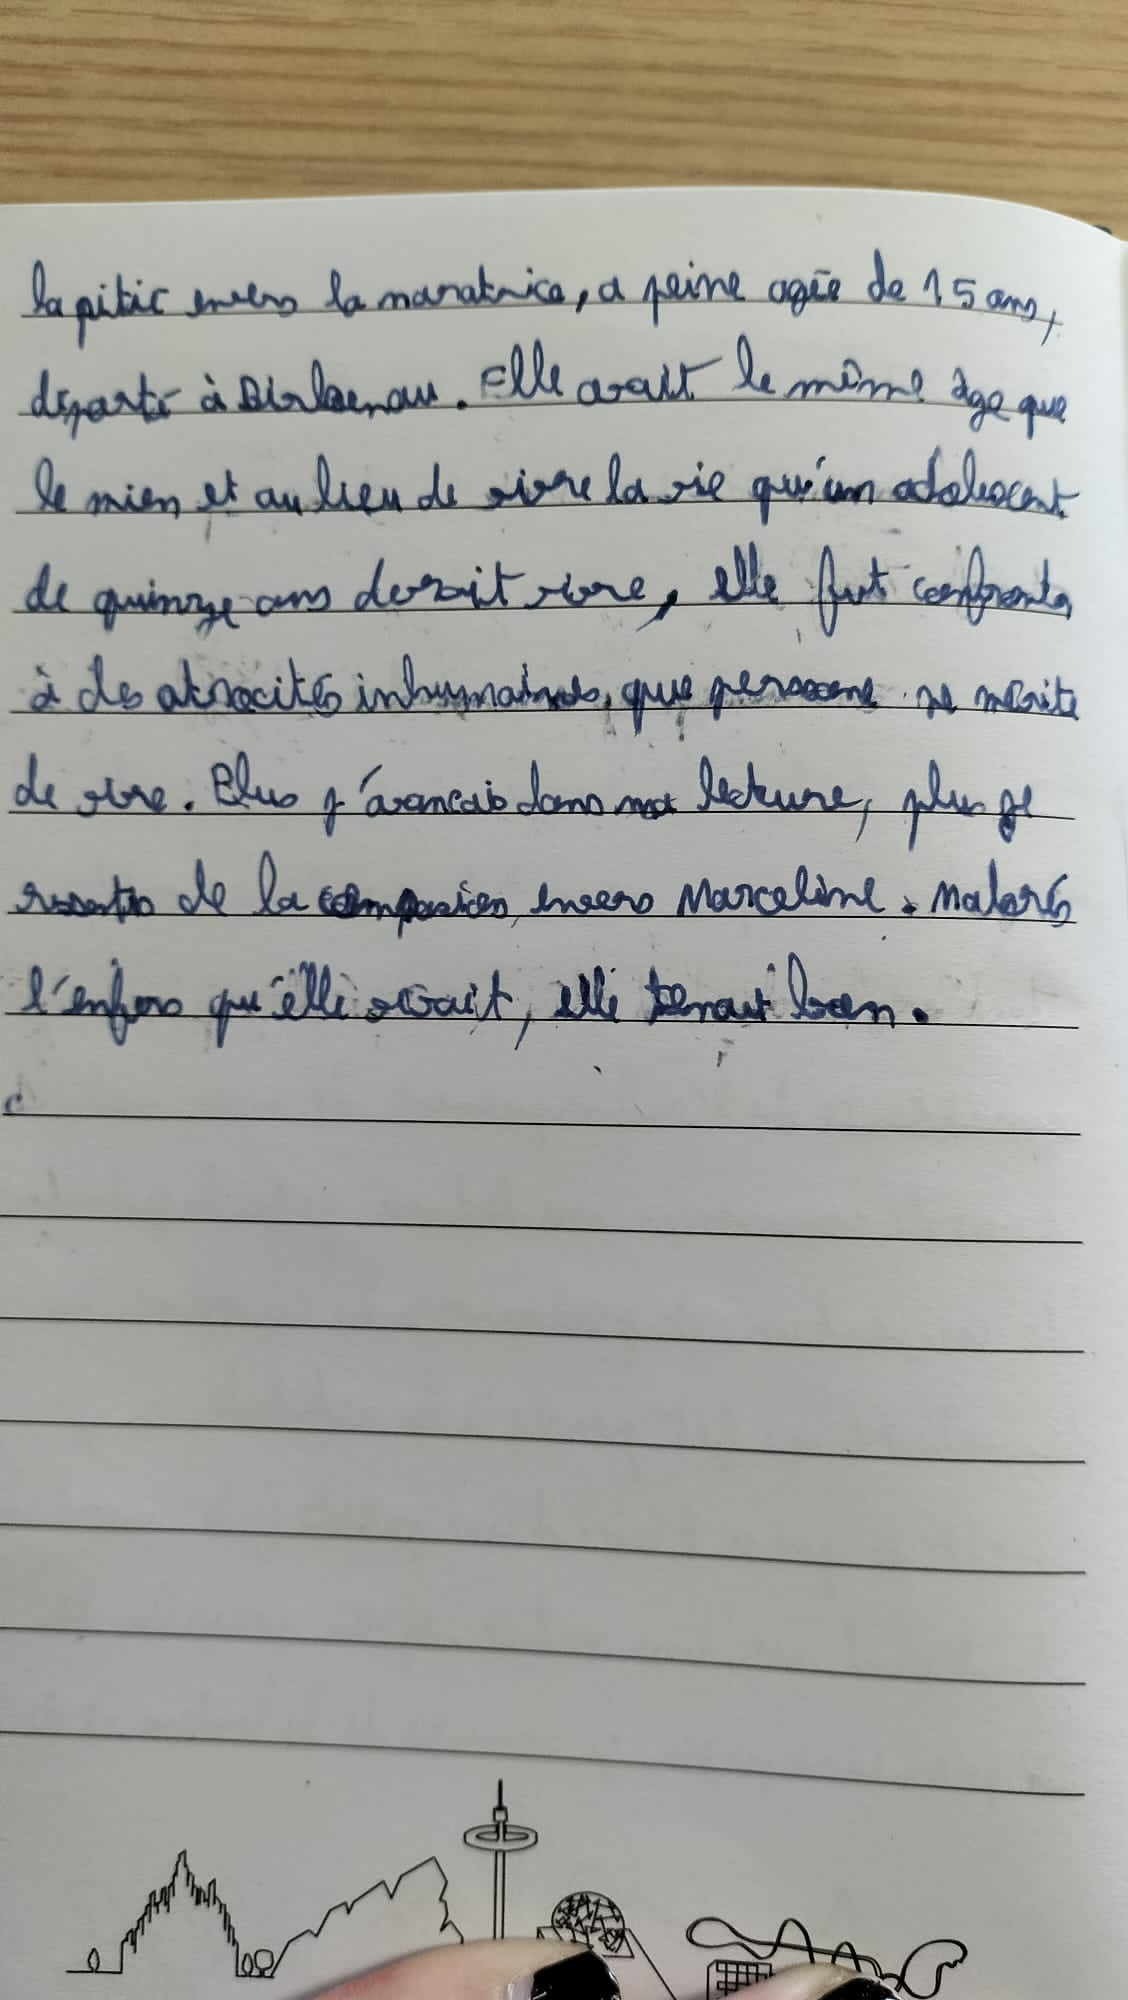 la pitié envers la narratrice, a peine agée de 15 ans,
déporté à Birkenau. Elle avait le même âge que
le mien et au lieu de vivre la vie qu'un adolescent
de quinze ans devrait vivre, elle fut confronta
à des atrocités inhumaines, que personne ne mérite
de vivre. Plus j'avançais dans ma lecture, plus je
ressentis de la compassion envers Marceline. Malgrés
l'enfers qu'elle vivait, elle tenait bon.